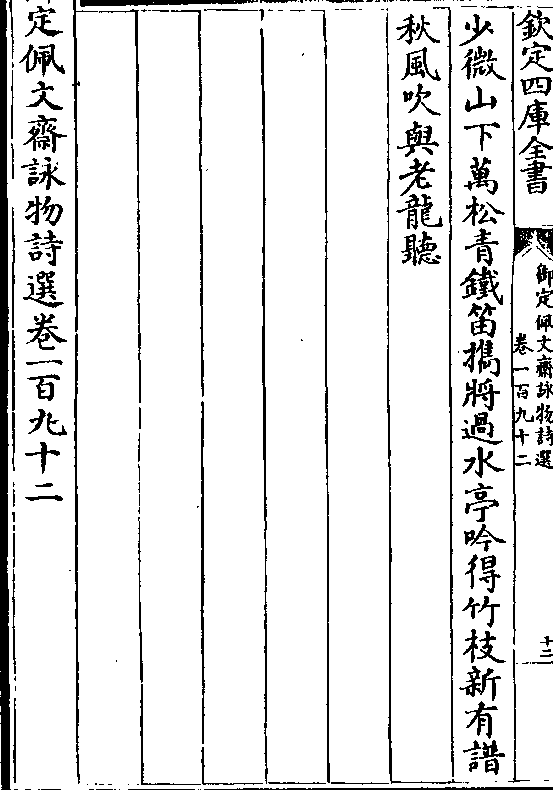 欽定四庫全書
御定佩文齋詠物詩選
卷一百九十二
十二
少微山下萬松青鐵笛攜將過水亭吟得竹枝新有譜
秋風吹與老龍聽
定佩文齋詠物詩選卷一百九十二